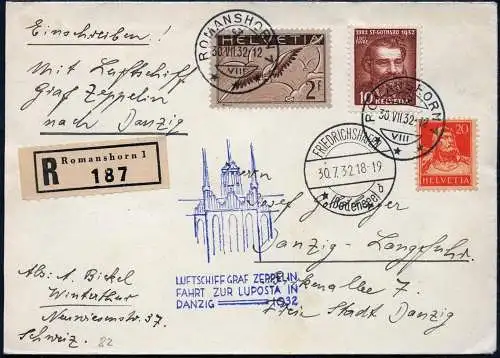 Einschreiben!
Mit Luftschiff
Graf Zeppelin
nach Danzig
ROMANSHORN
30.VII.32-12
VIII
HELVETIA
2F
1882 ST-GOTHARD 1932
10 HELVETIA
ROMANSHORN
30.VII.32-12
VIII
20
HELVETIA
FRIEDRICHSHAFEN
30.7.32.18-19
(Bodensee) b
R
Romanshorn 1
187
Herrn
Josef
Danzig-Langfuhr
7.
Freie Stadt Danzig
LUFTSCHIFF GRAF ZEPPELIN
FAHRT ZUR LUPOSTA IN
DANZIG 1932
Abs: A. Bickel
Winterthur
Neuwiesenstr. 37.
Schweiz.